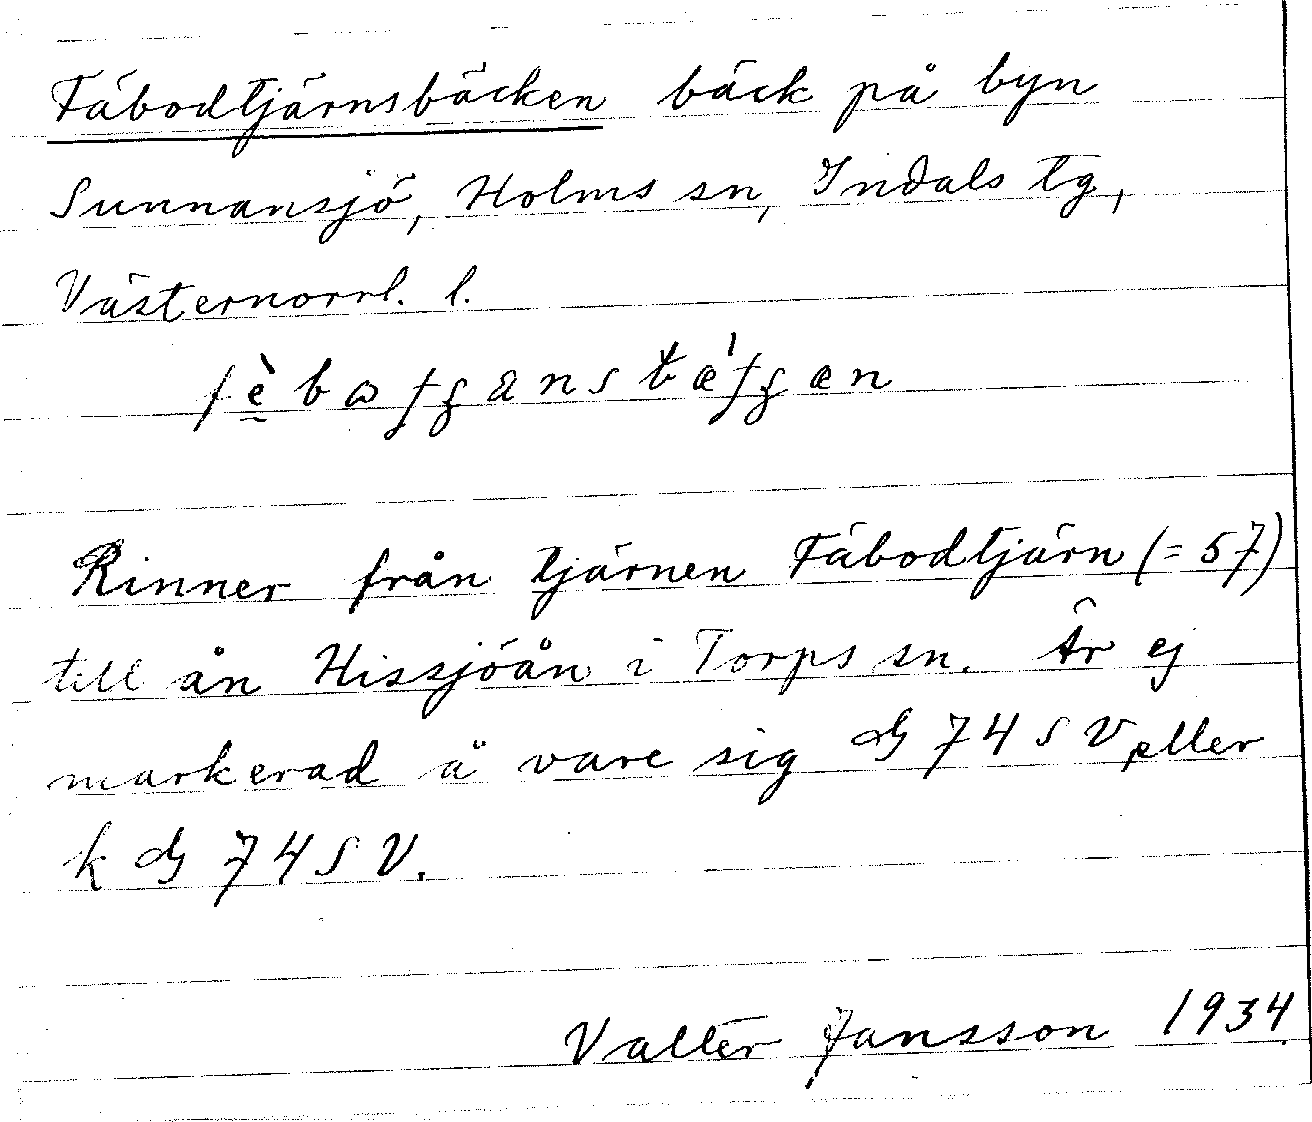 Fäbodtjärnsbäcken bäck på byn
Sunnansjö, Holms sn, Indals tg,
Västernorrl. l.
Rinner från tjärnen Fäbodtjärn (= 57)
till ån Hissjöån i Torps sn. Är ej
markerad å vare sig 74 SV eller
k 74 SV.
Valter Jansson 1934.